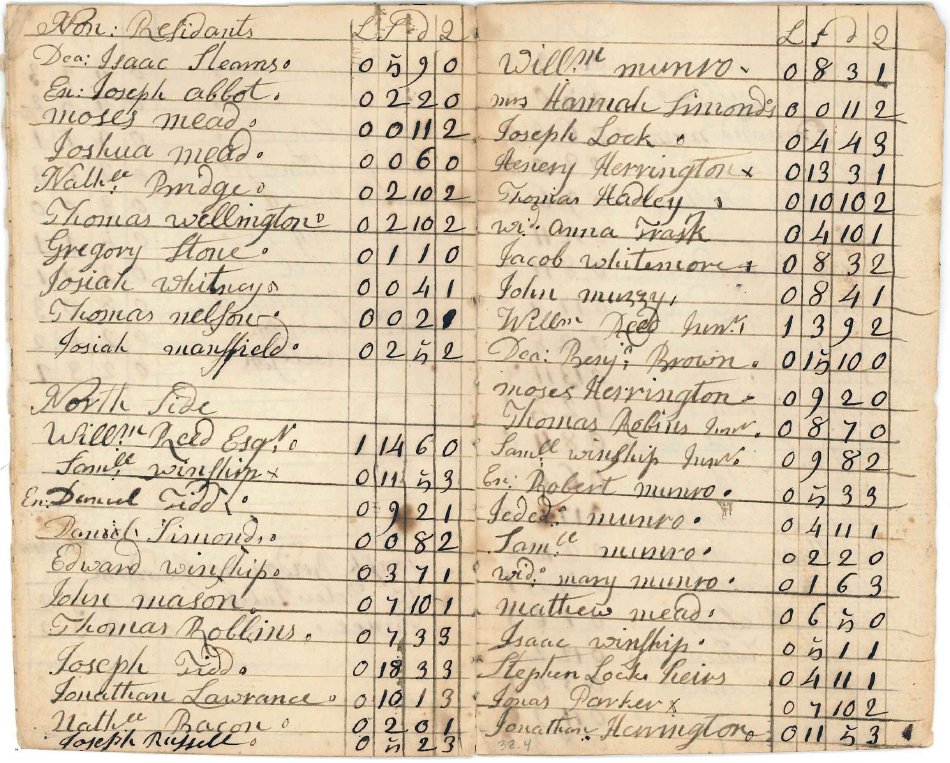 Non: Residants L S d 2
Dea: Isaac Stearns. 0 5 9 0
En: Joseph abbot. 0 2 2 0
moses mead. 0 0 11 2
Joshua mead. 0 0 6 0
Nathll Bridge. 0 2 10 2
Thomas wellington 0 2 10 2
Gregory Stone. 0 1 1 0
Josiah whitney 0 0 4 1
Thomas nelson. 0 0 2 1
Josiah mansffield. 0 2 5 2
North Side
Willm Reed Esqr. 1 14 6 0
Samll winship x 0 11 5 3
En: Daniel Tidd. 0 9 2 1
Daniel Simonds. 0 0 8 2
Edward winship. 0 3 7 1
John mason. 0 7 10 1
Thomas Robbins. 0 7 3 3
Joseph Tidd. 0 18 3 3
Jonathan Lawrance. 0 10 1 3
Nathll Bacon. 0 2 0 1
Joseph Russell. 0 5 2 3
L S d 2
Willm munro. 0 8 3 1
mrs Hannah Simonds 0 0 11 2
Joseph Lock. 0 4 4 3
Henery Herrington x 0 13 3 1
Thomas Hadley 0 10 10 2
wid. anna Trask 0 4 10 1
Jacob whitemore x 0 8 3 2
John muzzy. 0 8 4 1
Willm Reed Junr. 1 3 9 2
Dea: Benjn Brown. 0 15 10 0
moses Herrington. 0 9 2 0
Thomas Robins Junr. 0 8 7 0
Samll winship Junr. 0 9 8 2
En: Robert munro. 0 5 3 3
Jeded. munro. 0 4 11 1
Samll munro. 0 2 2 0
wid. mary munro. 0 1 6 3
mathew mead. 0 6 5 0
Isaac winship. 0 5 1 1
Stephen Locks Heirs 0 4 11 1
Jonas Parker x 0 7 10 2
Jonathan Herrington. 0 11 5 3
32.4